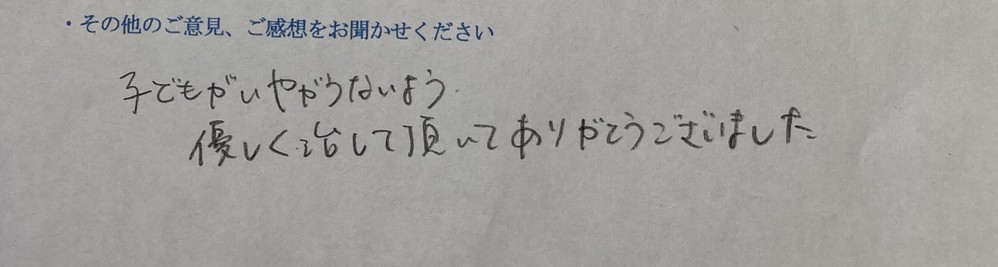 ・その他のご意見、ご感想をお聞かせください
子どもがいやがらないよう
優しく治して頂いてありがとうございました